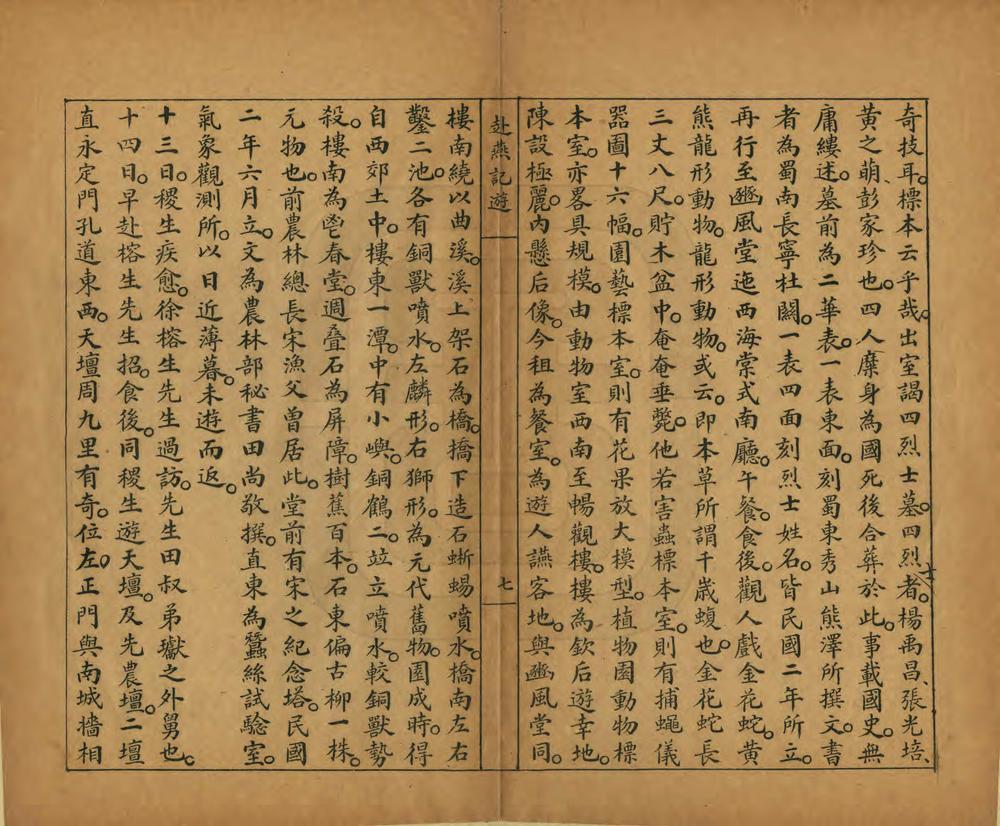 奇技耳。標本云乎哉。出室謁四烈士墓。四烈士者。楊禹昌、張光培、
黃之萌、彭家珍也。四人糜身為國死後合葬於此。事載國史。無
庸縷述。墓前為二華表。一表東面。刻蜀東秀山熊澤所撰文。書
者為蜀南長寧杜關。一表四面刻烈士姓名。皆民國二年所立。
再行至豳風堂迤西海棠式南廳。午餐。食後。觀人戲金花蛇。黃
熊龍形動物。龍形動物。或云。即本草所謂千歲蝮也。金花蛇長
三丈八尺。貯木盆中。奄奄垂斃。他若害蟲標本室。則有捕蠅儀
器圖十六幅。園藝標本室。則有花果放大模型。植物園動物標
本室。亦畧具規模。由動物室西南至暢觀樓。樓為欽后遊幸地。
陳設極麗。內懸后像。今租為餐室。為遊人讌客地。與豳風堂同。
赴燕記遊
七
樓南繞以曲溪。溪上架石為橋。橋下造石蜥蜴噴水。橋南左右
鑿二池。各有銅獸噴水。左麟形。右獅形。為元代舊物。園成時。得
自西郊土中。樓東一潭。中有小嶼。銅鶴二。竝立噴水。較銅獸勢
殺。樓南為鬯春堂。週疊石為屏障。樹蕉百本。石東偏古柳一株。
元物也。前農林總長宋漁父曾居此。堂前有宋之紀念塔。民國
二年六月立。文為農林部秘書田尚敬撰。直東為蠶絲試驗室。
氣象觀測所。以日近薄暮。未遊而返。
十三日。稷生疾愈。徐榕生先生過訪。先生田叔弟瓛之外舅也。
十四日。早赴榕生先生招。食後。同稷生遊天壇。及先農壇。二壇
直永定門孔道東西。天壇周九里有奇。位左。正門與南城墻相